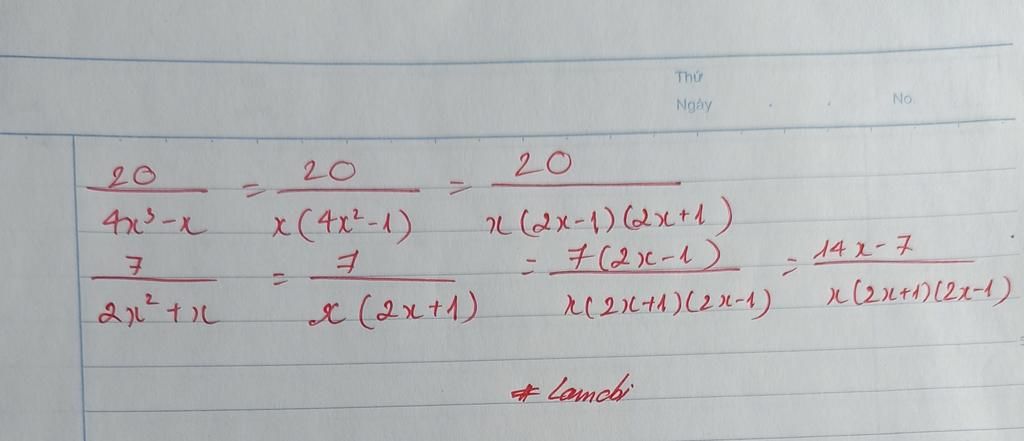 Thứ
Ngày . . No.
20/(4x³-x) = 20/(x(4x²-1)) = 20/(x(2x-1)(2x+1))
7/(2x²+x) = 7/(x(2x+1)) = 7(2x-1)/(x(2x+1)(2x-1)) = (14x-7)/(x(2x+1)(2x-1))